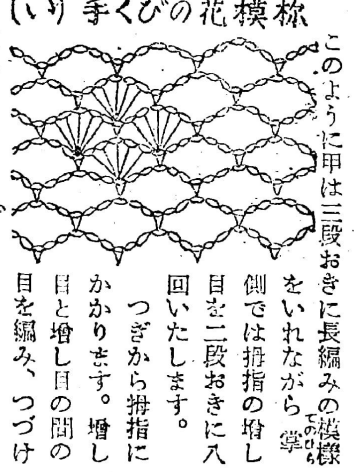 (い) 手くびの花模様
このように甲は三段おきに長編みの模様
をいれながら 掌
てのひら
側では拇指の増し
目を二段おきに八
回いたします。
つぎから拇指に
かかります。増し
目と増し目の間の
目を編み、つづけ